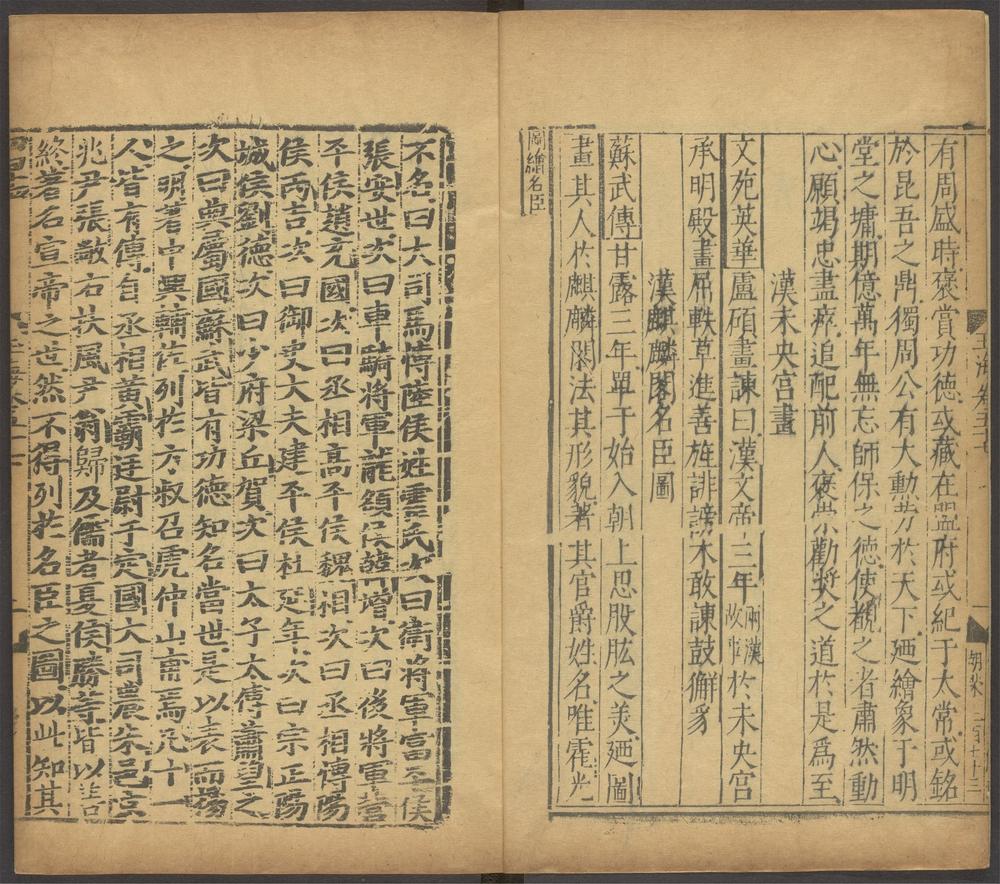 有周盛時褒賞功德或藏在盟府或紀于太常或銘
於昆吾之鼎獨周公有大勳勞於天下廼繪象于明
堂之墉期億萬年無忘師保之德使觀之者肅然動
心願竭忠盡瘁追配前人褒崇勸奬之道於是爲至
漢未央宫畫
文苑英華盧碩畫諫曰漢文帝三年兩漢故事於未央宫
承明殿畫屈軼草進善旌誹謗木敢諫鼓獬豸
漢麒麟閣名臣圖
蘇武傳甘露三年單于始入朝上思股肱之美廼圖
畫其人於麒麟閣法其形貌著其官爵姓名唯霍光
圖繪名臣
不名曰大司馬博陸侯姓霍氏次曰衛將軍富平侯
張安世次曰車騎將軍龍頟侯韓增次曰後將軍營
平侯趙充國次曰丞相高平侯魏相次曰丞相博陽
侯丙吉次曰御史大夫建平侯杜延年次曰宗正陽
城侯劉德次曰少府梁丘賀次曰太子太傅蕭望之
次曰典屬國蘇武皆有功德知名當世是以表而揚
之明著中興輔佐列於方叔召虎仲山甫焉凡十一
人皆有傳自丞相黄霸廷尉于定國大司農朱邑京
兆尹張敞右扶風尹翁歸及儒者夏侯勝等皆以善
終著名宣帝之世然不得列於名臣之圖以此知其
玉海卷五十七
朝彩 二百七十三